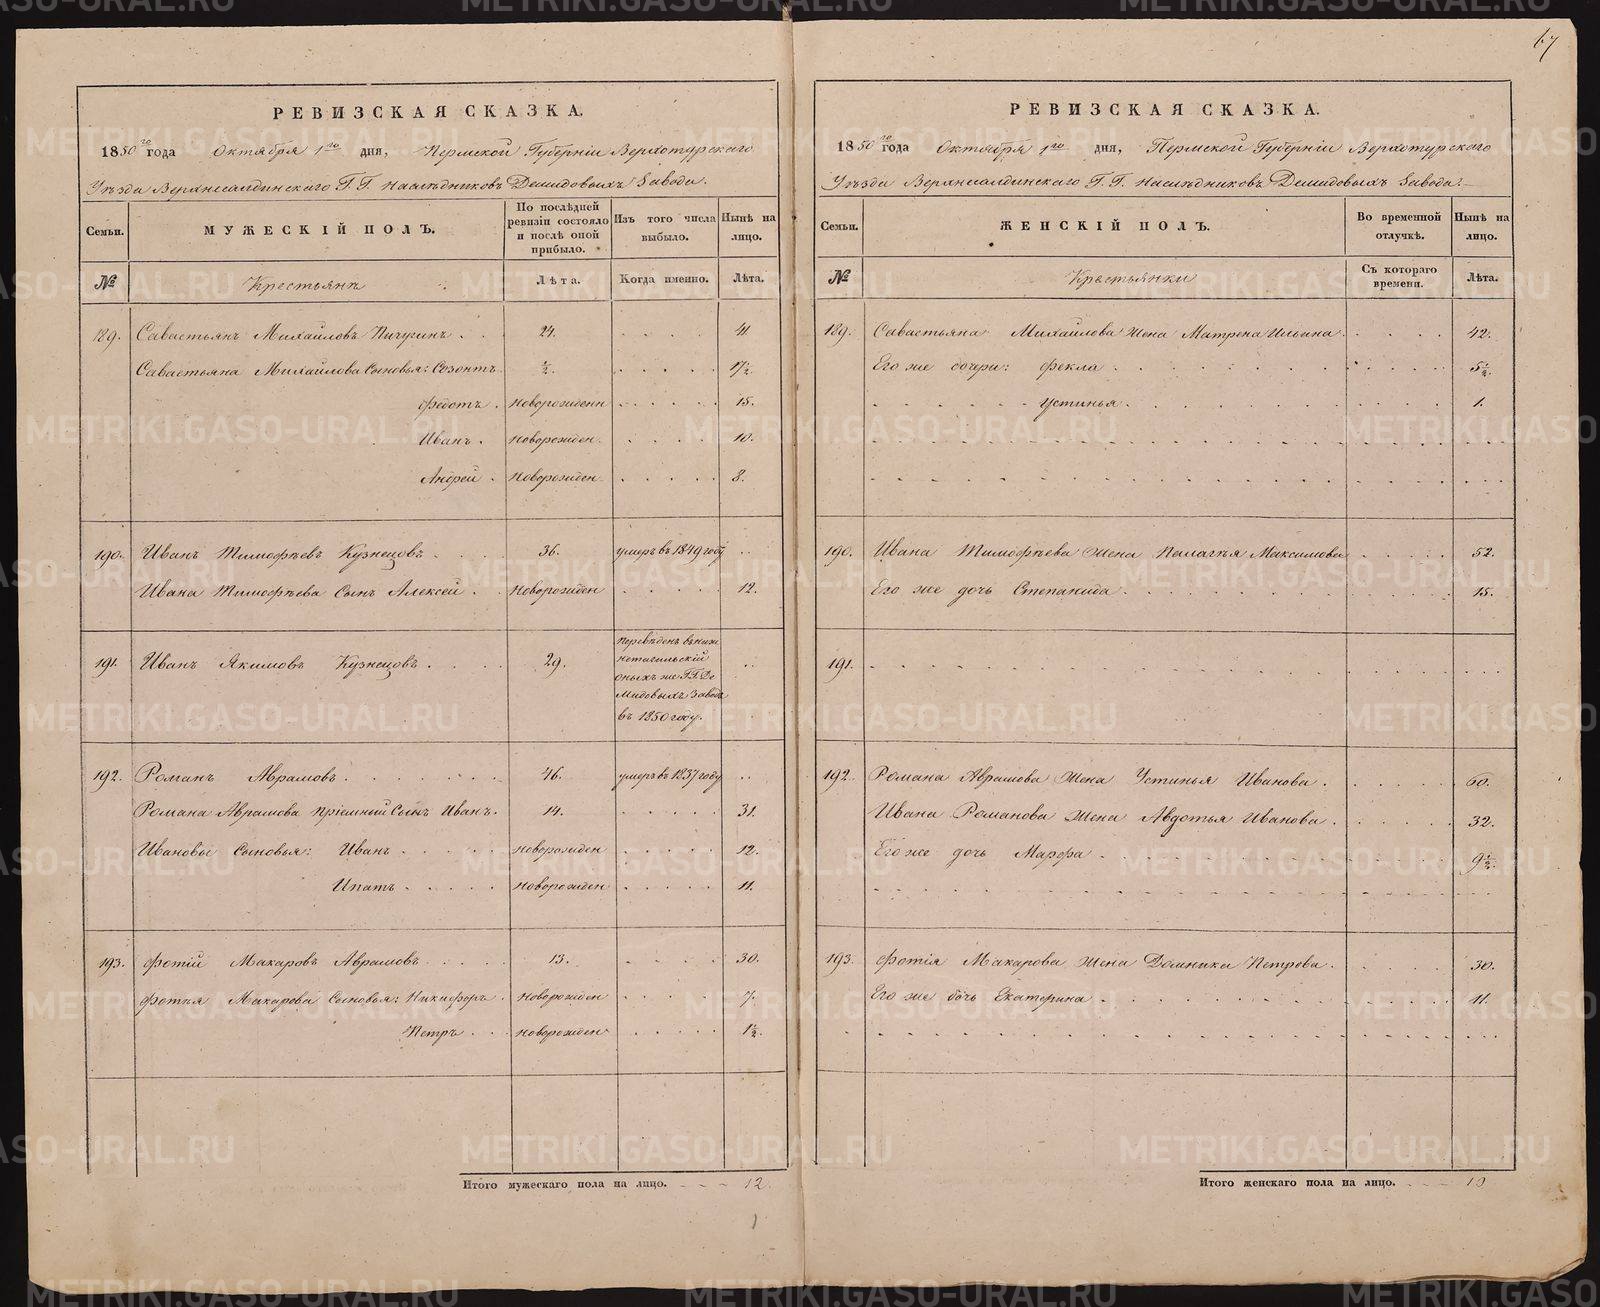 67
РЕВИЗСКАЯ СКАЗКА.
1850го года Октября 1го дня, Пермской Губерніи Верхотурскаго
Уѣзда Верхнесалдинскаго Г.Г. Наслѣдниковъ Демидовыхъ Завода.
Семьи. МУЖЕСКІЙ ПОЛЪ. По послѣдней ревизіи состояло и послѣ оной прибыло. Изъ того числа выбыло. Нынѣ на лицо.
№ Крестьянъ Лѣта. Когда именно. Лѣта.
189. Савастьянъ Михайловъ Пичугинъ. 24. 41.
Савастьяна Михайлова Сыновья: Созонтъ ½. 17½.
Федотъ. Новорожденн 15.
Иванъ. Новорожден. 10.
Андрей. Новорожден. 8.
190. Иванъ Тимофѣевъ Кузнецовъ. 36. умеръ въ 1849 году
Ивана Тимофѣева Сынъ Алексей. Новорожден 12.
191. Иванъ Якимовъ Кузнецовъ. 29. Перевѣденъ въ Ниж
нетагильскій
оныхъ же Г.Г. Де
мидовыхъ Заводъ
въ 1850 году.
192. Романъ Аврамовъ. 46. умеръ въ 1837 году
Романа Аврамова пріемный Сынъ Иванъ. 14. 31.
Ивановы Сыновья: Иванъ новорожден 12.
Ипатъ новорожден 11.
193. Фотій Макаровъ Аврамовъ. 13. 30.
Фотья Макарова Сыновья: Никифоръ. новорожден 7.
Петръ. новорожден 1½.
Итого мужескаго пола на лицо. 12.
РЕВИЗСКАЯ СКАЗКА.
1850го года Октября 1го дня, Пермской Губерніи Верхотурскаго
Уѣзда Верхнесалдинскаго Г.Г. Наслѣдниковъ Демидовыхъ Завода.
Семьи. ЖЕНСКІЙ ПОЛЪ. Во временной отлучкѣ. Нынѣ на лицо.
№ Крестьянки Съ котораго времени. Лѣта.
189. Савастьяна Михайлова Жена Матрена Ильина. 42.
Его же дочери: Фекла 5½.
Устинья. 1.
190. Ивана Тимофѣева Жена Палагѣя Максимова 52.
Его же дочь Степанида 15.
191.
192. Романа Аврамова Жена Устинья Иванова. 60.
Ивана Романова Жена Авдотья Иванова. 32.
Его же дочь Марфа 9½.
193. Фотія Макарова Жена Домника Петрова. 30.
Его же дочь Екатерина 11.
Итого женскаго пола на лицо. 10
METRIKI.GASO-URAL.RU